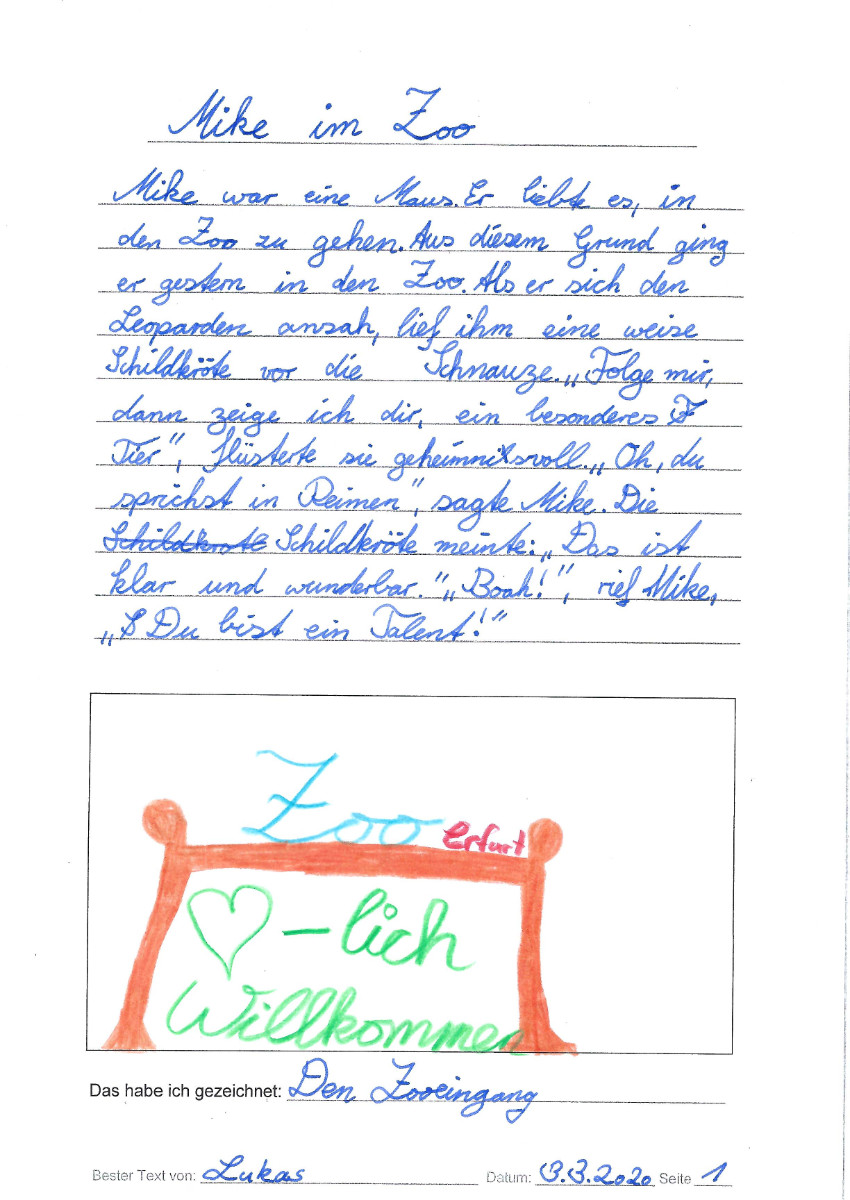 Mike im Zoo
Mike war eine Maus. Er liebte es, in
den Zoo zu gehen. Aus diesem Grund ging
er gestern in den Zoo. Als er sich den
Leoparden ansah, lief ihm eine weise
Schildkröte vor die Schnauze. „Folge mir,
dann zeige ich dir, ein besonderes
Tier“, flüsterte sie geheimnisvoll. „Oh, du
sprichst in Reimen“, sagte Mike. Die
Schildkrote Schildkröte meinte: „Das ist
klar und wunderbar.“ „Boah!“, rief Mike,
„Du bist ein Talent!“
Zoo Erfurt
♡-lich
Willkommen
Das habe ich gezeichnet: Den Zooeingang
Bester Text von: Lukas Datum: 3.3.2020 Seite 1